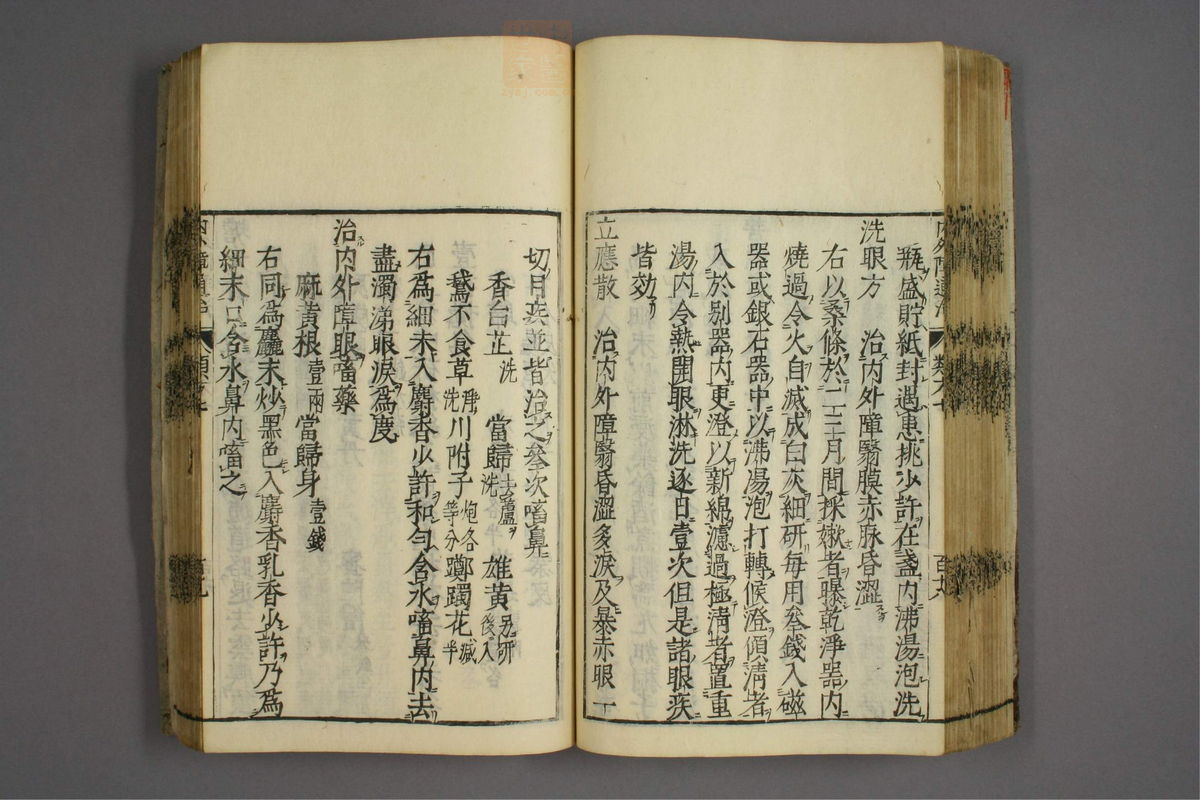 瓶盛貯紙封遇患挑少許在盞内沸湯泡洗
洗眼方　治内外障翳膜赤脉昏澀
右以桑條於二三月間採嫩者曝乾淨器内
燒過令火自滅成白灰細研毎用叄錢入磁
器或銀石器中以沸湯泡打轉候澄傾清者
入於别器内更澄以新綿濾過極清者置重
湯内令熱開眼淋洗逐日壹次但是諸眼疾
皆効
立應散　治内外障翳昏澀多淚及暴赤眼一
切目疾並皆治之叄次㗜鼻
香白芷洗　當歸去蘆洗　雄黄另研後入
鵞不食草淨洗　川附子炮各等分　躑躅花減半
右爲細末入麝香少許和勻含水㗜鼻内去
盡濁涕眼淚爲度
治内外障眼㗜藥
麻黄根壹兩　當歸身壹錢
右同爲麤末炒黑色入麝香乳香少許乃爲
細末口含水鼻内㗜之